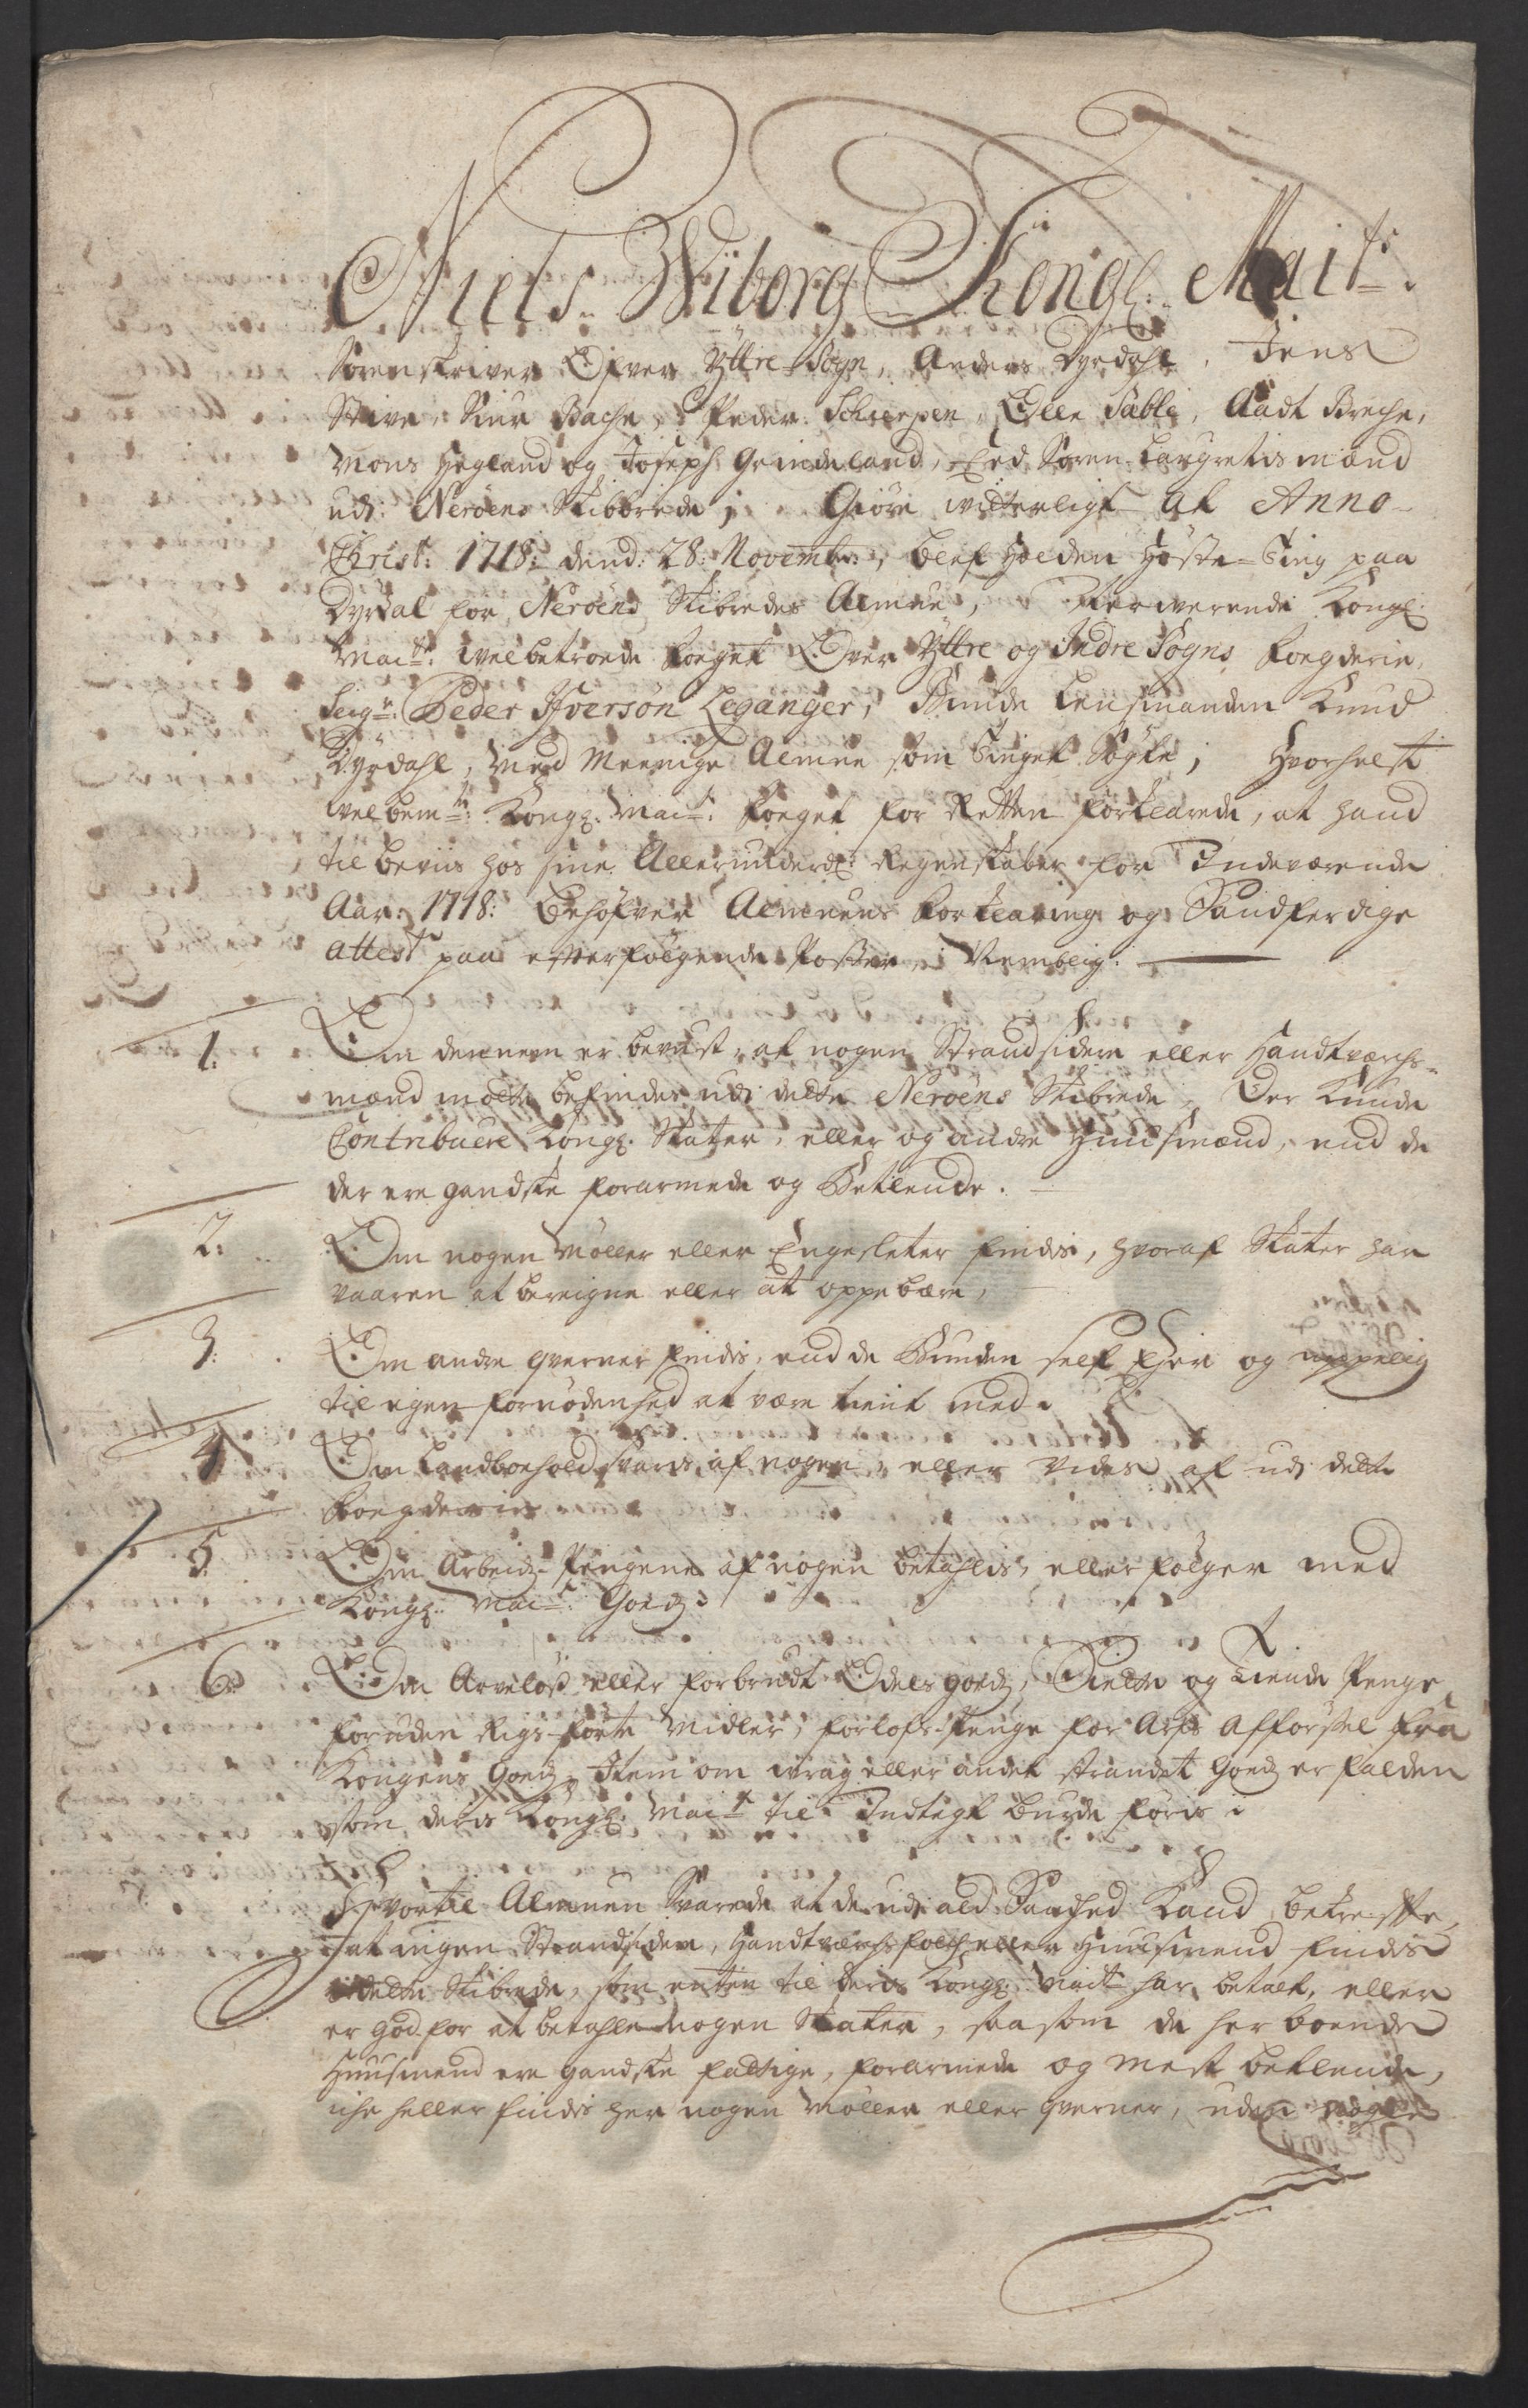 Niels Wiborg Kongl: Maits:
Sorenskriver Ofver Yttre Sogn, Anders Dyrdahl, Jens
Stive, Siur Bache, Peder Schierpen, Olle Sæble, Aadt Breche,
Mons Hegland og Joseph Grindeland, Eed Soren Laugrettis mænd
udi Neröens Skibbrede; Giöre witterligt at Anno
Christ: 1718: dend: 28: Novembr:, blef holden Höste-Ting paa
Dyrdal for Neröens Skibredes Almue, Nerwerende Kongl:
Maits: welbetroede Foeget Over Yttre og Indre Sogns Foegderie,
Seigr: Peder Iversön Leganger, Bunde Lensmanden Knud
Dyrdahl, med Meenige Almue som Tinget Sögte; Hvorhelst
welbemte: Kongl: Maits: Foeget for Retten forklarede, at hand
til beviis hos sine Allerunderd: Regenskaber for Indeværende
Aar: 1718: Behöfver Almuens forklaring og Sandferdige
attest paa efterfölgende Poster, Nemblig:
1: Om dennem er bevust, at nogen Strandsidere eller Handtværchs-
mænd motte befindes udi dette Neröens Skibrede, Der kunde
Contribuere Kongl: Skater, eller og andre Huusmænd, end de
der ere gandske forarmede og Betlende.
2: Om nogen Möller eller Engesletter findis, hvoraf Skater har
vaaren at bereigne eller at oppebære,
3: Om andre qverner findis, end de Bunden self Ejer og neppelig
til egen fornödenhed at være tient med.
4 Om Landboehold svaris af nogen, eller vides af udi dette
Foegderie
5: Om Arbeidz-Pengene af nogen betahlis, eller fölger med
Kongl: Maits: Goedz:
6: Om Arvelöß eller forbrudt Odelsgoedz, Siette og Tiende Penge
foruden Rigs-förte Midler, forlofs-Penge for Arfs Afförsel fra
Kongens Goedz, Item om wrag eller andet strandet Goedz er falden
som deris Kongl: Maits: til Indtegt burde föris:
Hvortil Almuen svarede at de udi ald Sandhed kand bekreffte,
at ingen Strandsidere, Handtværchsfolch eller Huusmend findis
i dette Skibrede, som enten til deris Kongl: Maits har betalt, eller
er god for at betahle nogen Skater, saasom de her boende
Huusmend ere gandske fattige, forarmede og mest betlende,
iche heller findis her nogen Möller eller qverner, uden nogle